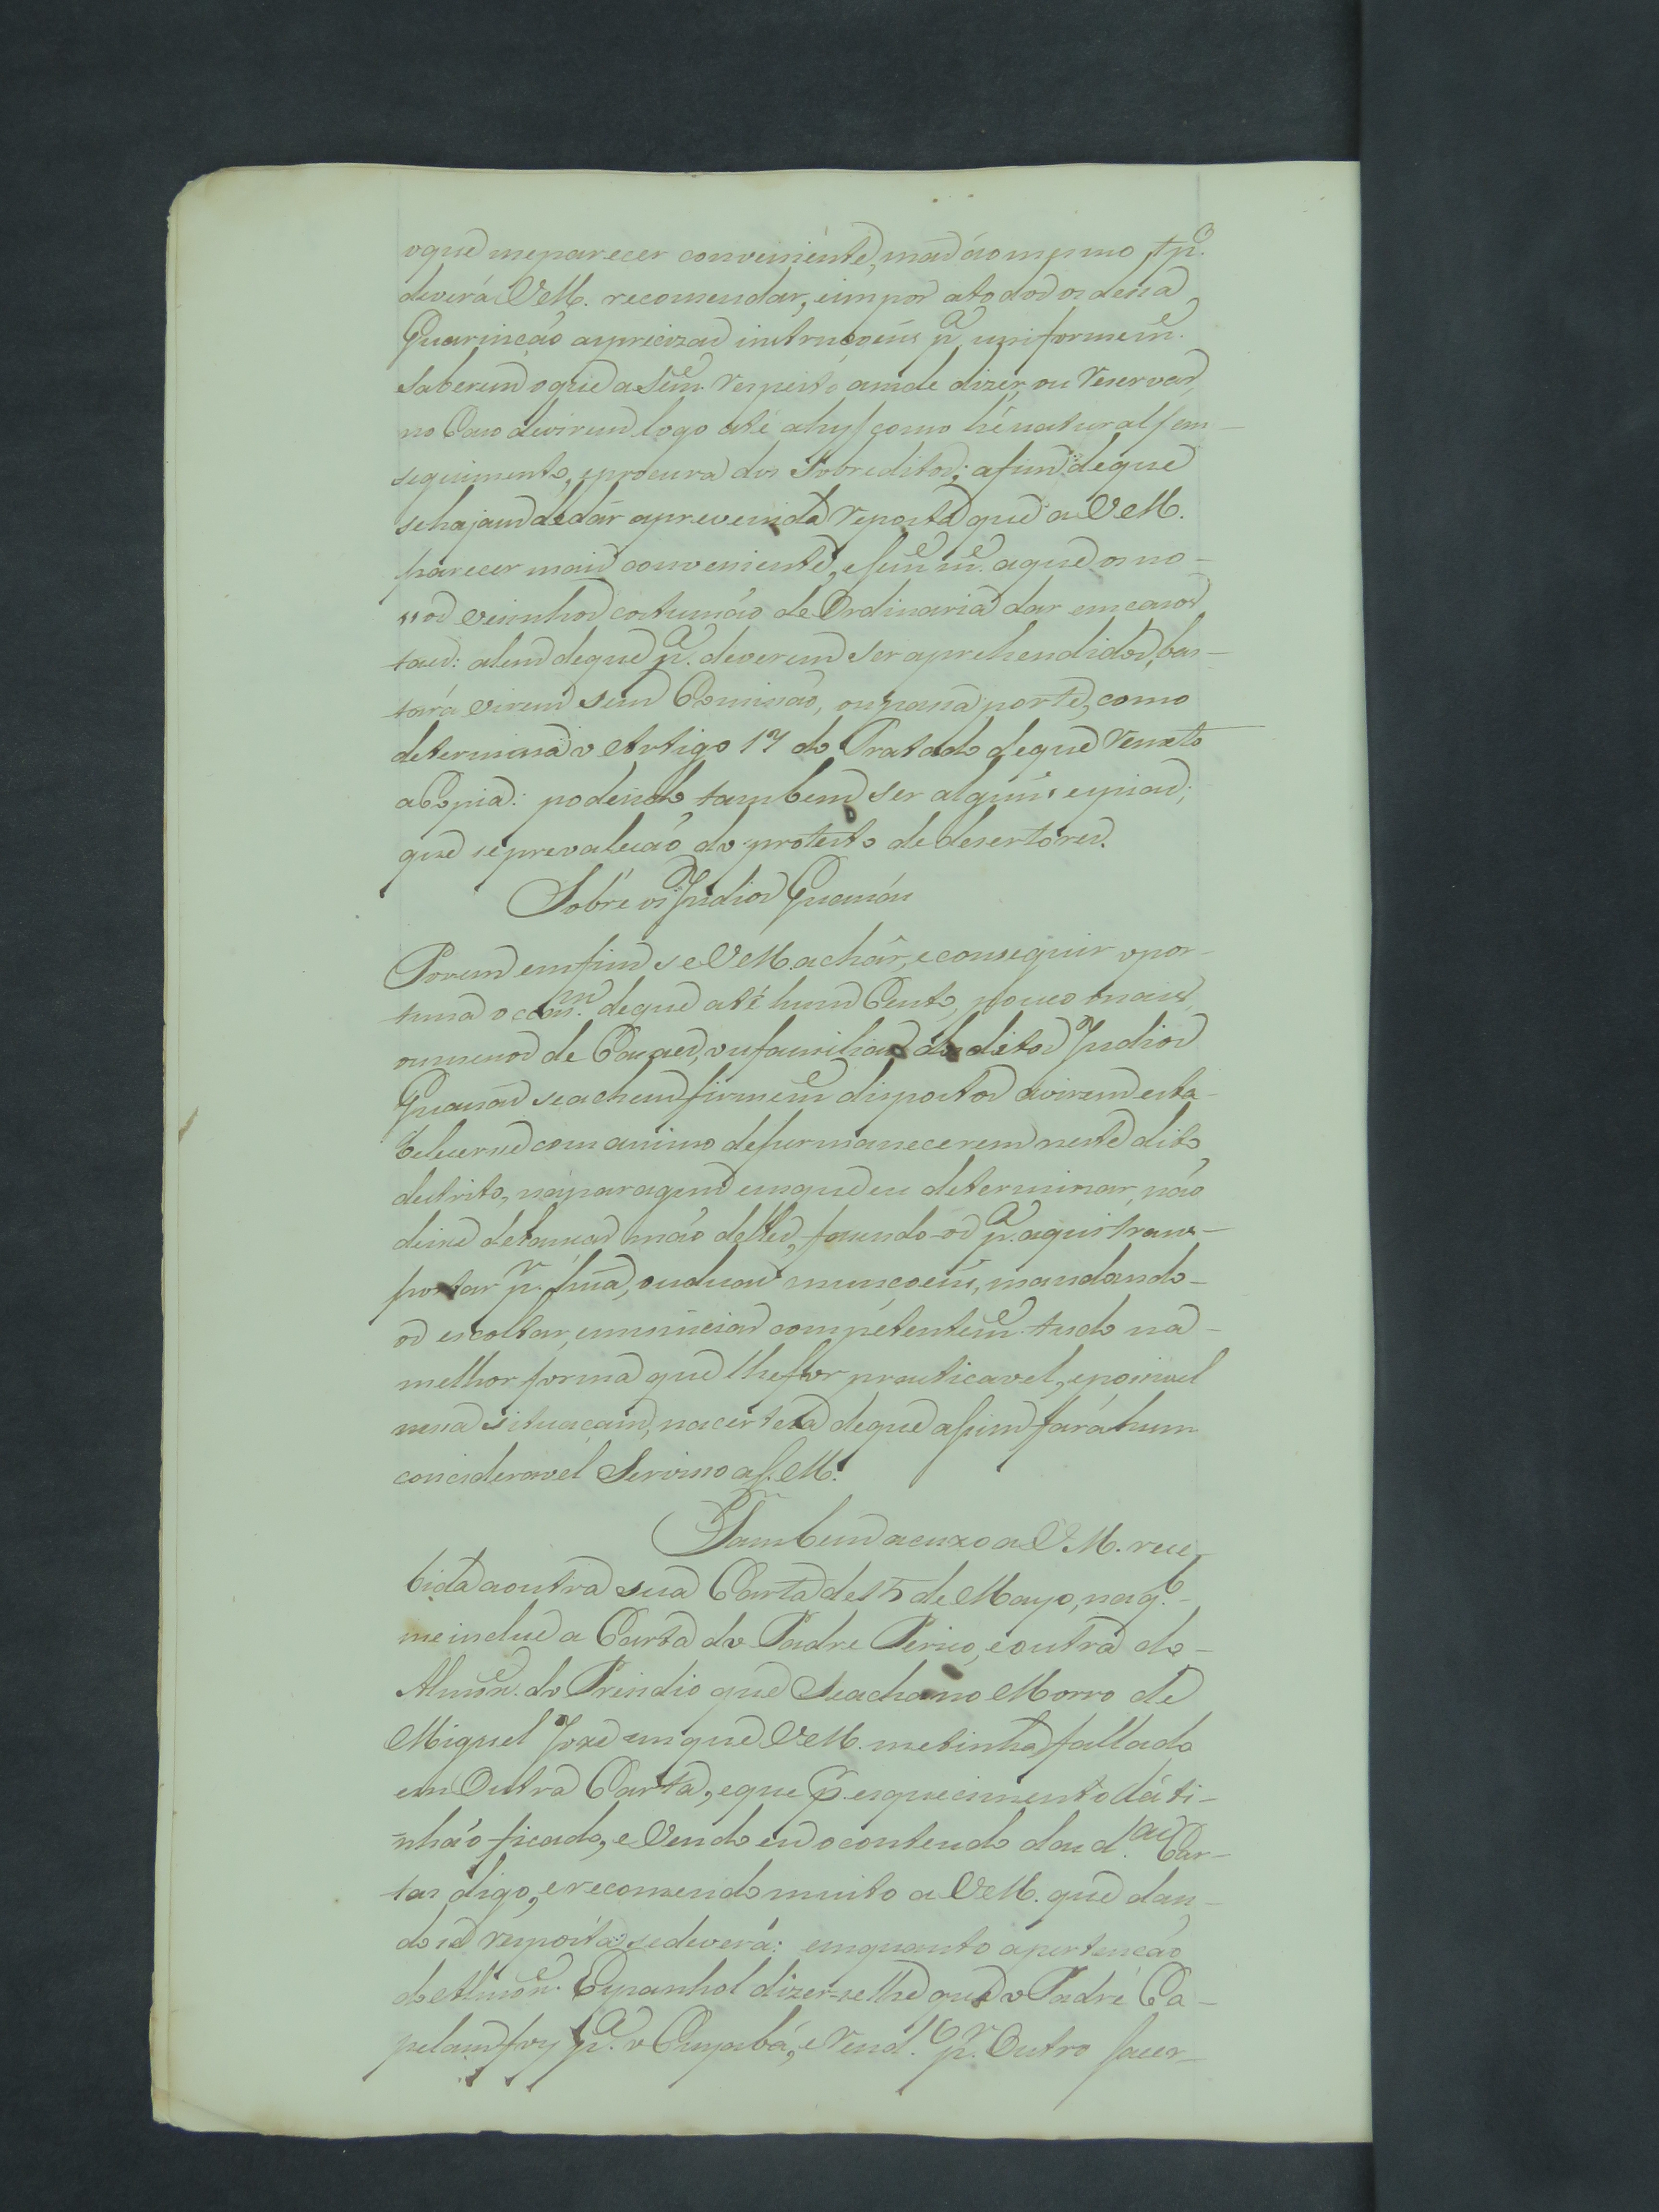 oque meparecer conveniente, mas ao mesmo tpo.
deverá VM. recomendar, eimpor atodos os dessa
Guarnição asprecizas instrucoens pa. uniformeme.
Saberem oque a Seme. respeito amde dizer, ou reservar,
no Cazo devirem logo até ahy/como hé natural/em
seguimento, eprocura dos Sobreditos; afim deque
sehajam dedár aprevenida reposta que a VM.
parecer mais conveniente, esememe. aque os no-
ssos vesinhos costumáo de Ordinaria dar em cazos
taes: alem deque pa. deverem ser aprehendidos, bas-
tará virem sem Comissáo, oupassaporte, como
determina o Artigo 17 do Tratado deque remeto
aCopia: podendo tambem ser alguns espias;
que seprevalecáo do protesto de desertores.
Sobre os Indios Guanás
Porem emfim se VM. achár, econseguir opor-
tuna occam. deque até hum Cento, pouco mais,
oumenos de Cazaes, oufamilias dos ditos Indios
Guanás seachem firmeme. dispostos avirem esta-
belecerse com animo depermanecerem neste dito
destrito, naparagem emque eu determinar, náo
deixe delancar máo delles, fazendo-os pa. aqui trans-
portar pr. huá, ouduas munçoens, mandando-
os escoltar, emuniciar competenteme. tudo na
melhor forma que lhe for praticavel, epossivel
nessa situacam, nacerteza deque asim fará hum
concideravel Servisso a S. M.
Tambem acuzo a VM. rece-
bida aoutra sua Carta de 15 de Mayo, naql.
meinclue a Carta do Padre Perico, eoutra do
Almone. do Prezidio que Seacha no Morro de
Miguel Joze emque VM. metinha fallado
em Outra Carta, eque pr. esquecimento lá ti-
nháo ficado, e Vendo eu ocontendo das das. Car-
tas digo, erecomendo muito a VM. que dan-
dose resposta sedeverá: emquanto apertencáo
do Almone. Espanhol dizer-selhe que o Padre Ca-
pelam foy pa. o Cuyabá, e Vend.o pr. Outro sacer-